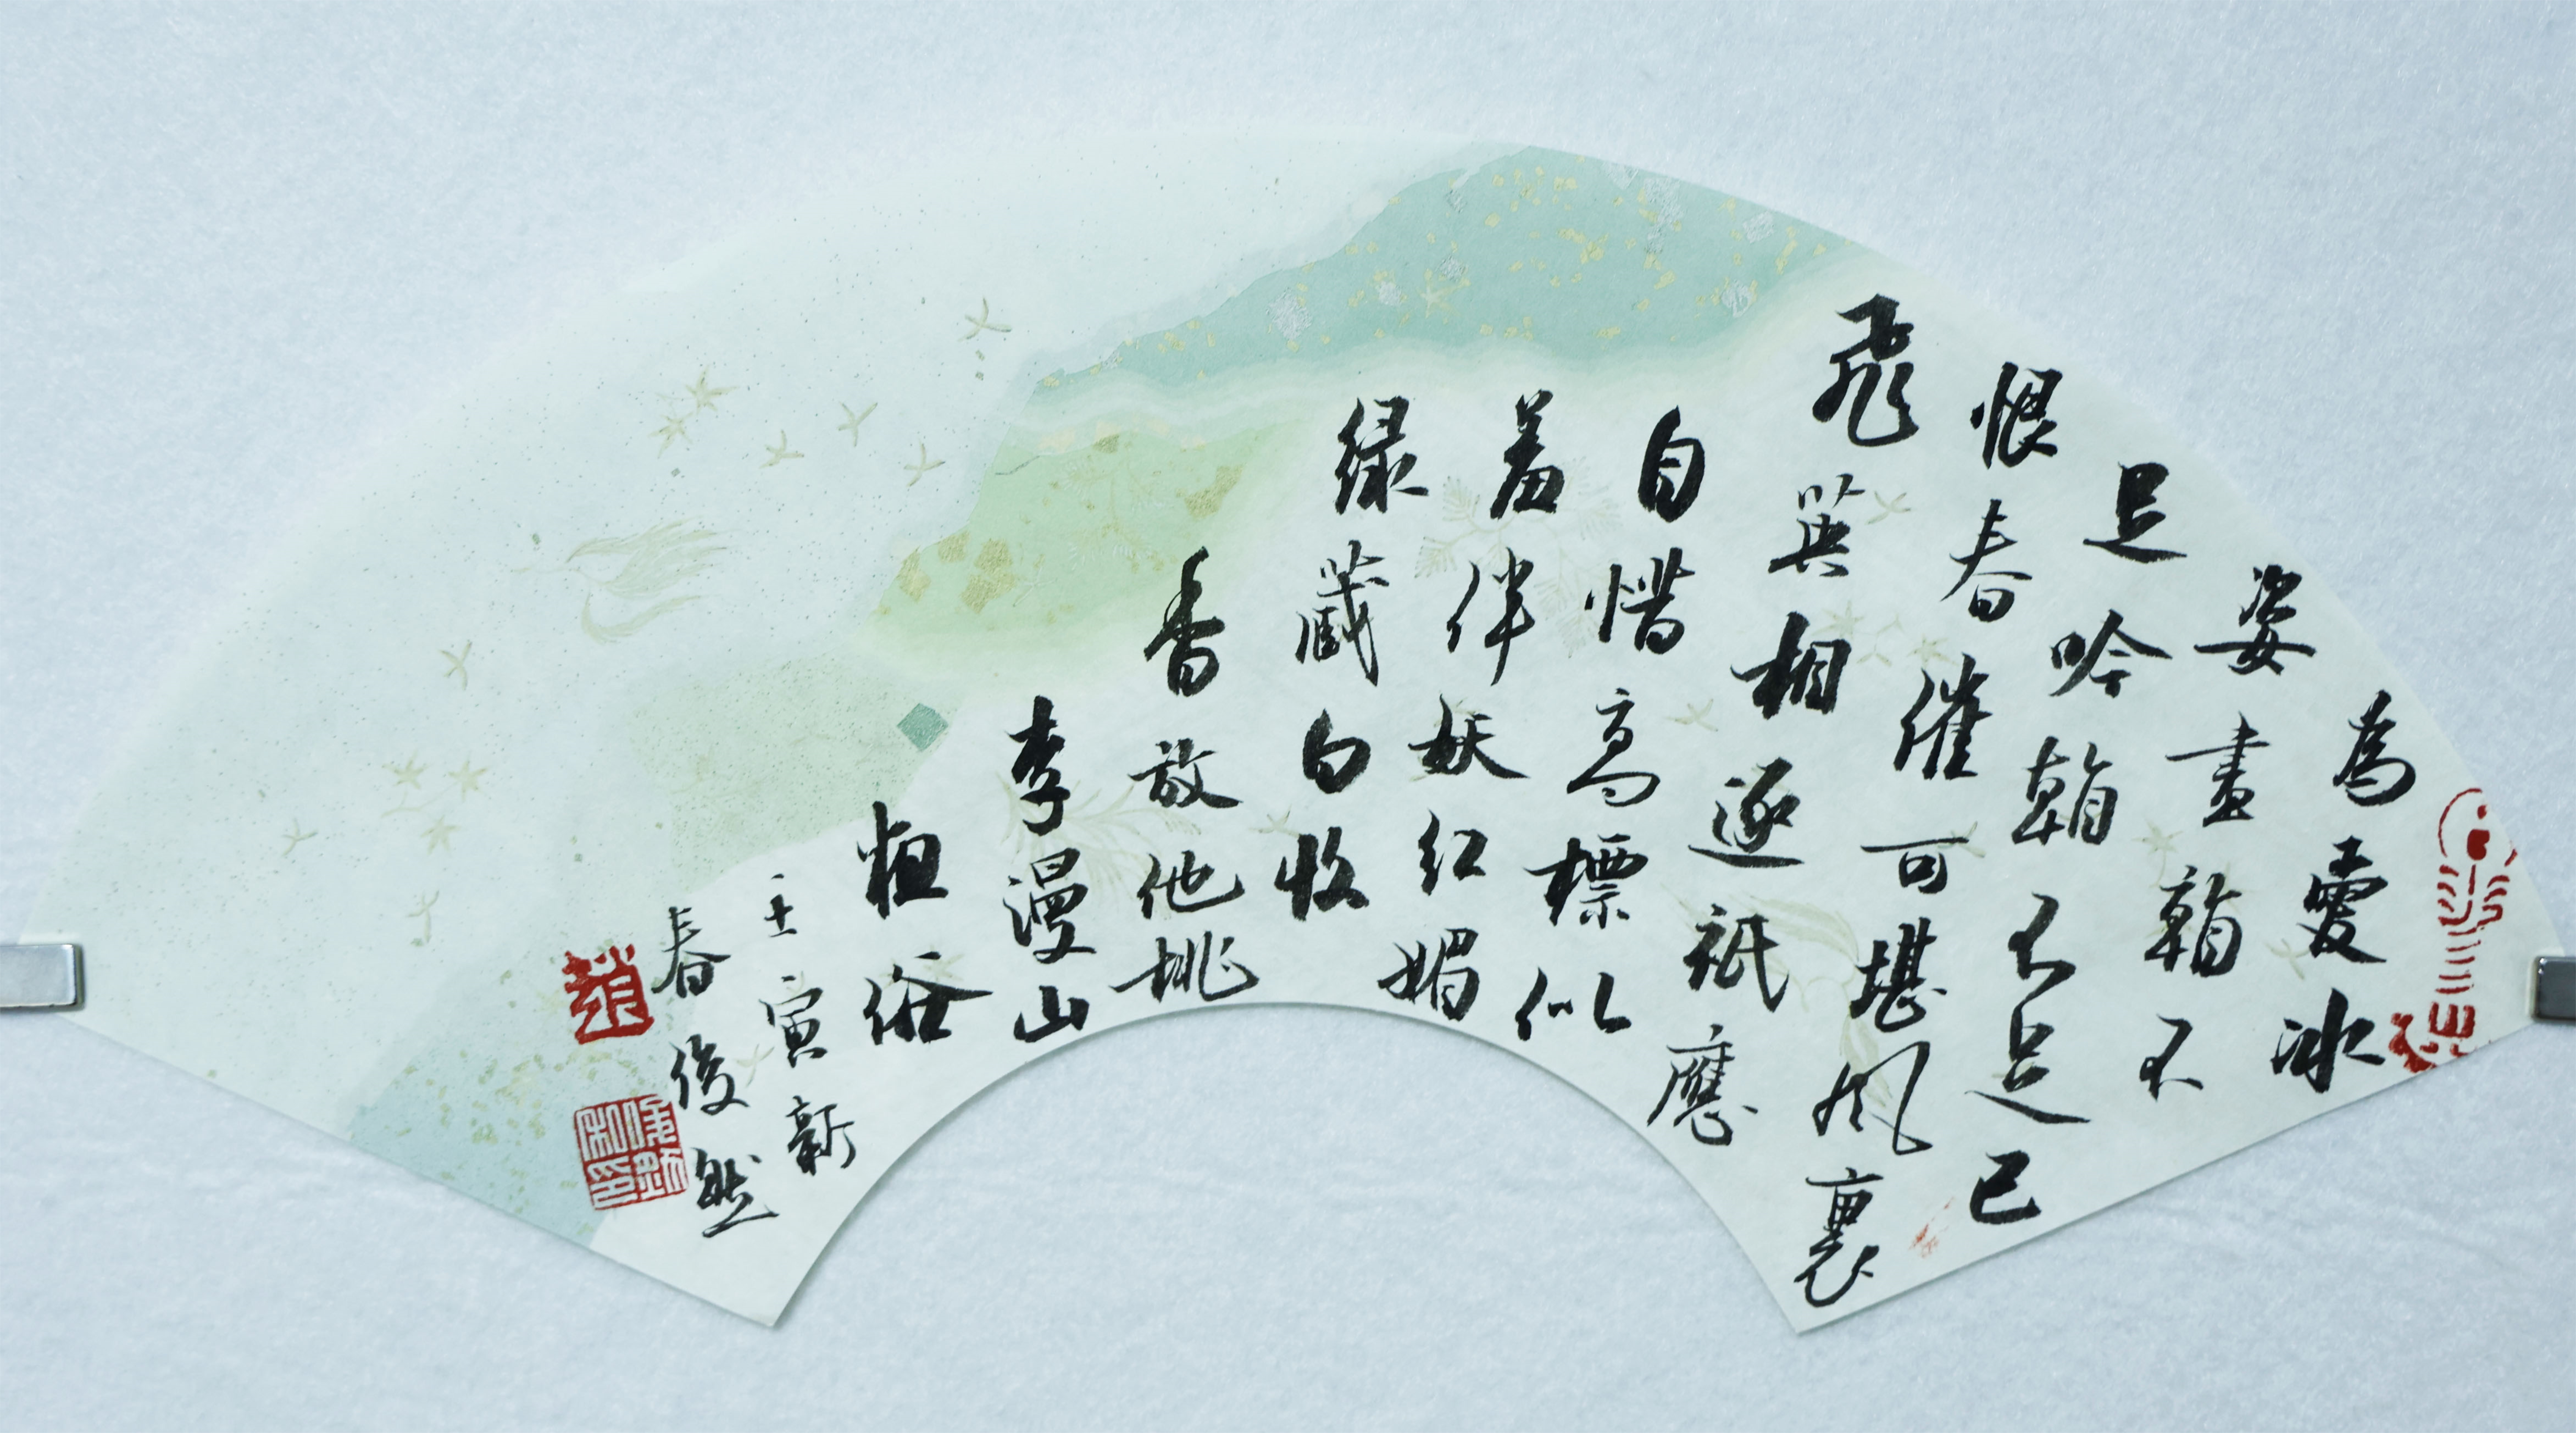 為愛冰
姿畫看不
足吟看不足已
恨春催可堪風裏
飛英相逐祇應
自惜高標似
羞伴妖紅媚
緑藏白收
香放他桃
李漫山
粗俗
壬寅新
春俊然
趙